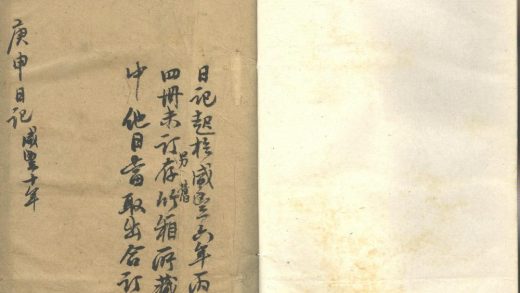 日記起於咸豐六年丙
另舊
四冊未訂存竹箱所藏
中他日當取出合訂
庚申日記 咸豐十年